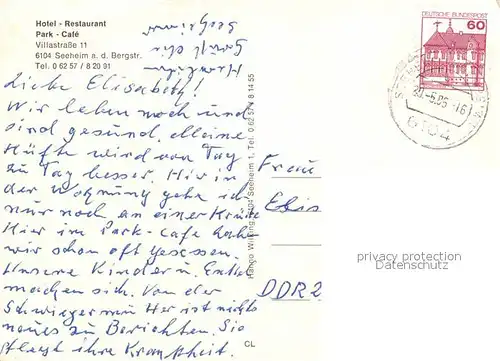 Hotel - Restaurant
Park - Café
Villastraße 11
6104 Seeheim a. d. Bergstr.
Tel. 0 62 57 / 8 20 91
Herzlichen
Liebe Elisabeth!
Wir leben noch und
sind gesund, meine
Hüfte wird von Tag
zu Tag besser. Hier in
der Wohnung gehe ich
nur noch an einer Krücke
Hier im Park-Cafe habe
wir schon oft gesessen.
Unsere Kinder u. Enkel
machen sich. Von der
Schwiegermu Her ist nichts
neues zu Berichten. Sie
pflegt ihre Krankheit.
CL
6104 Seeheim 1, Tel. 0 62 57 / 8 14 55
DEUTSCHE BUNDESPOST
60
6104
Frau
Elis
DDR 2
privacy protection
Datenschutz